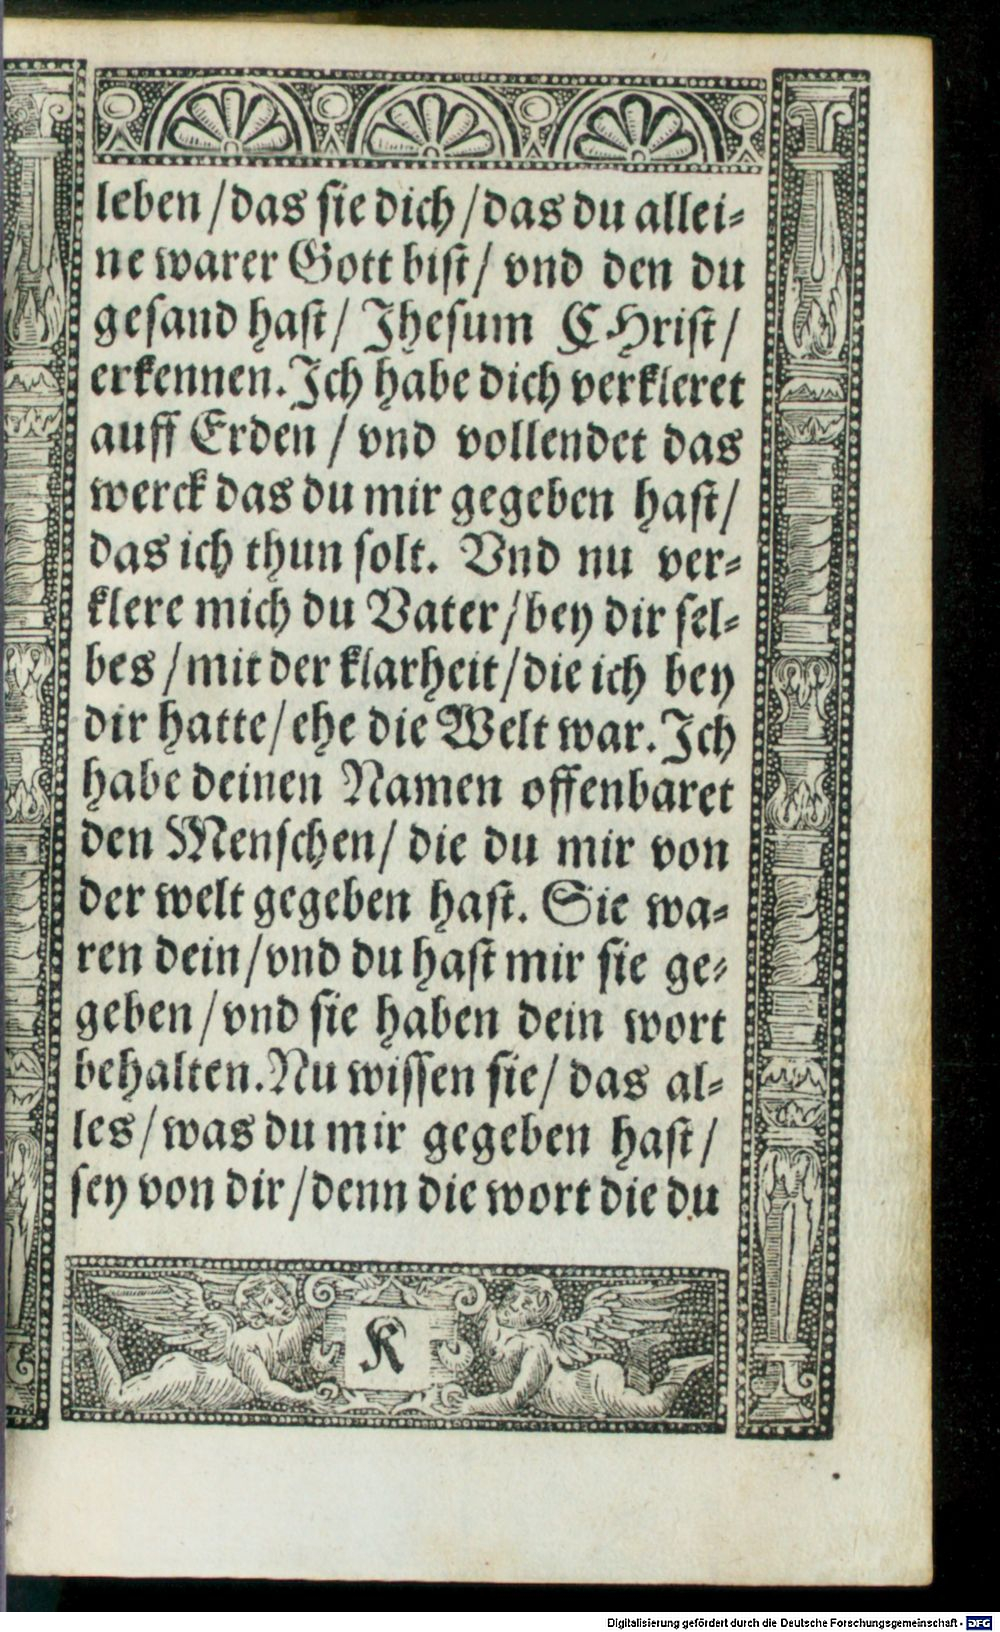 leben /das sie dich /das du allei⸗
ne warer Gott bist/ vnd den du
gesand hast/ Jhesum CHrist/
erkennen. Jch habe dich verkleret
auff Erden / vnd vollendet das
werck das du mir gegeben hast/
das ich thun solt. Vnd nu ver⸗
klere mich du Vater /bey dir sel⸗
bes /mit der klarheit /die ich bey
dir hatte/ ehe die Welt war. Jch
habe deinen Namen offenbaret
den Menschen/ die du mir von
der welt gegeben hast. Sie wa⸗
ren dein /vnd du hast mir sie ge⸗
geben /vnd sie haben dein wort
behalten. Nu wissen sie/ das al⸗
les /was du mir gegeben hast/
sey von dir /denn die wort die du
K
Digitalisierung gefördert durch die Deutsche Forschungsgemeinschaft - DFG